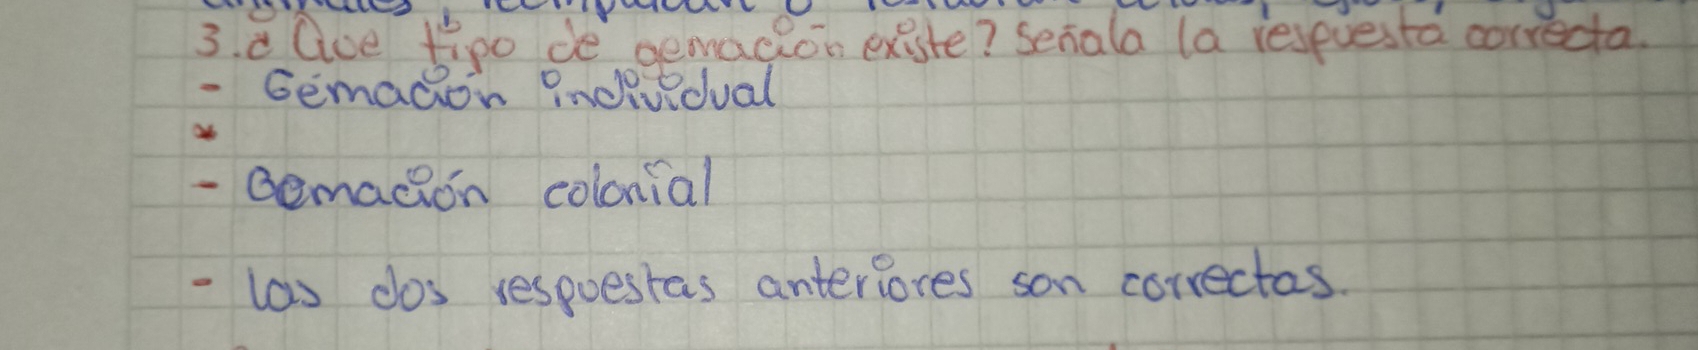 3. ¿Que tipo de gemación existe? Señala la respuesta correcta.
- Gemación individual
*
- Gemación colonial
- las dos respuestas anteriores son correctas.